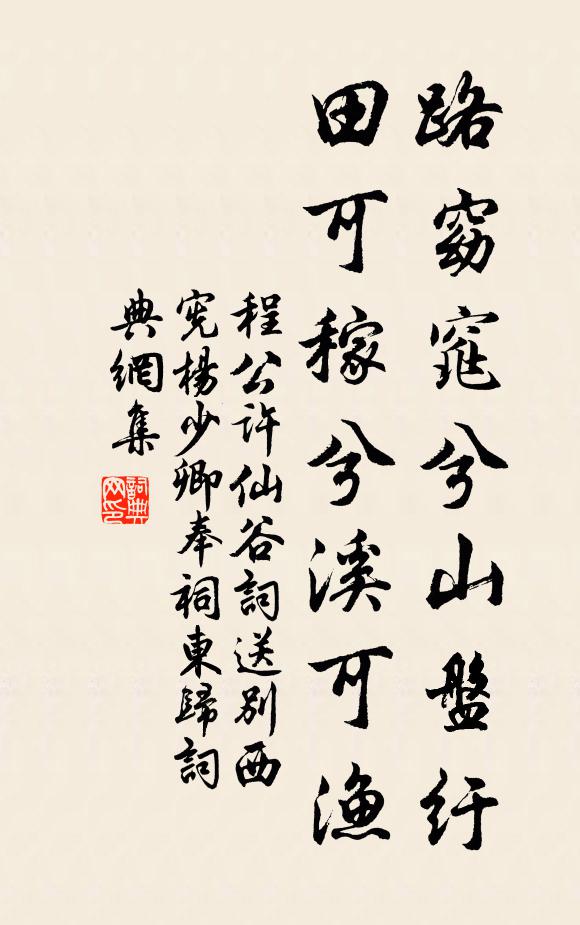 路窈窕兮山盤紆
田可稼兮溪可漁
程公許仙谷詞送別西
憲楊少卿奉祠東歸詞
典網集
詞典網印